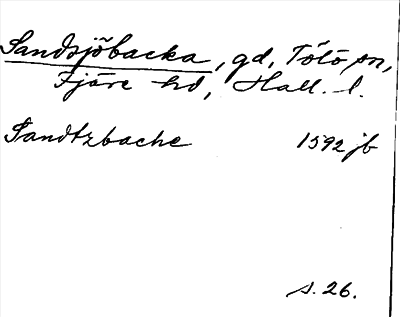 Sandsjöbacka, gd, Tölö sn,
Fjäre hd, Hall. l.
Sandtzbache 1592 jb
s. 26.